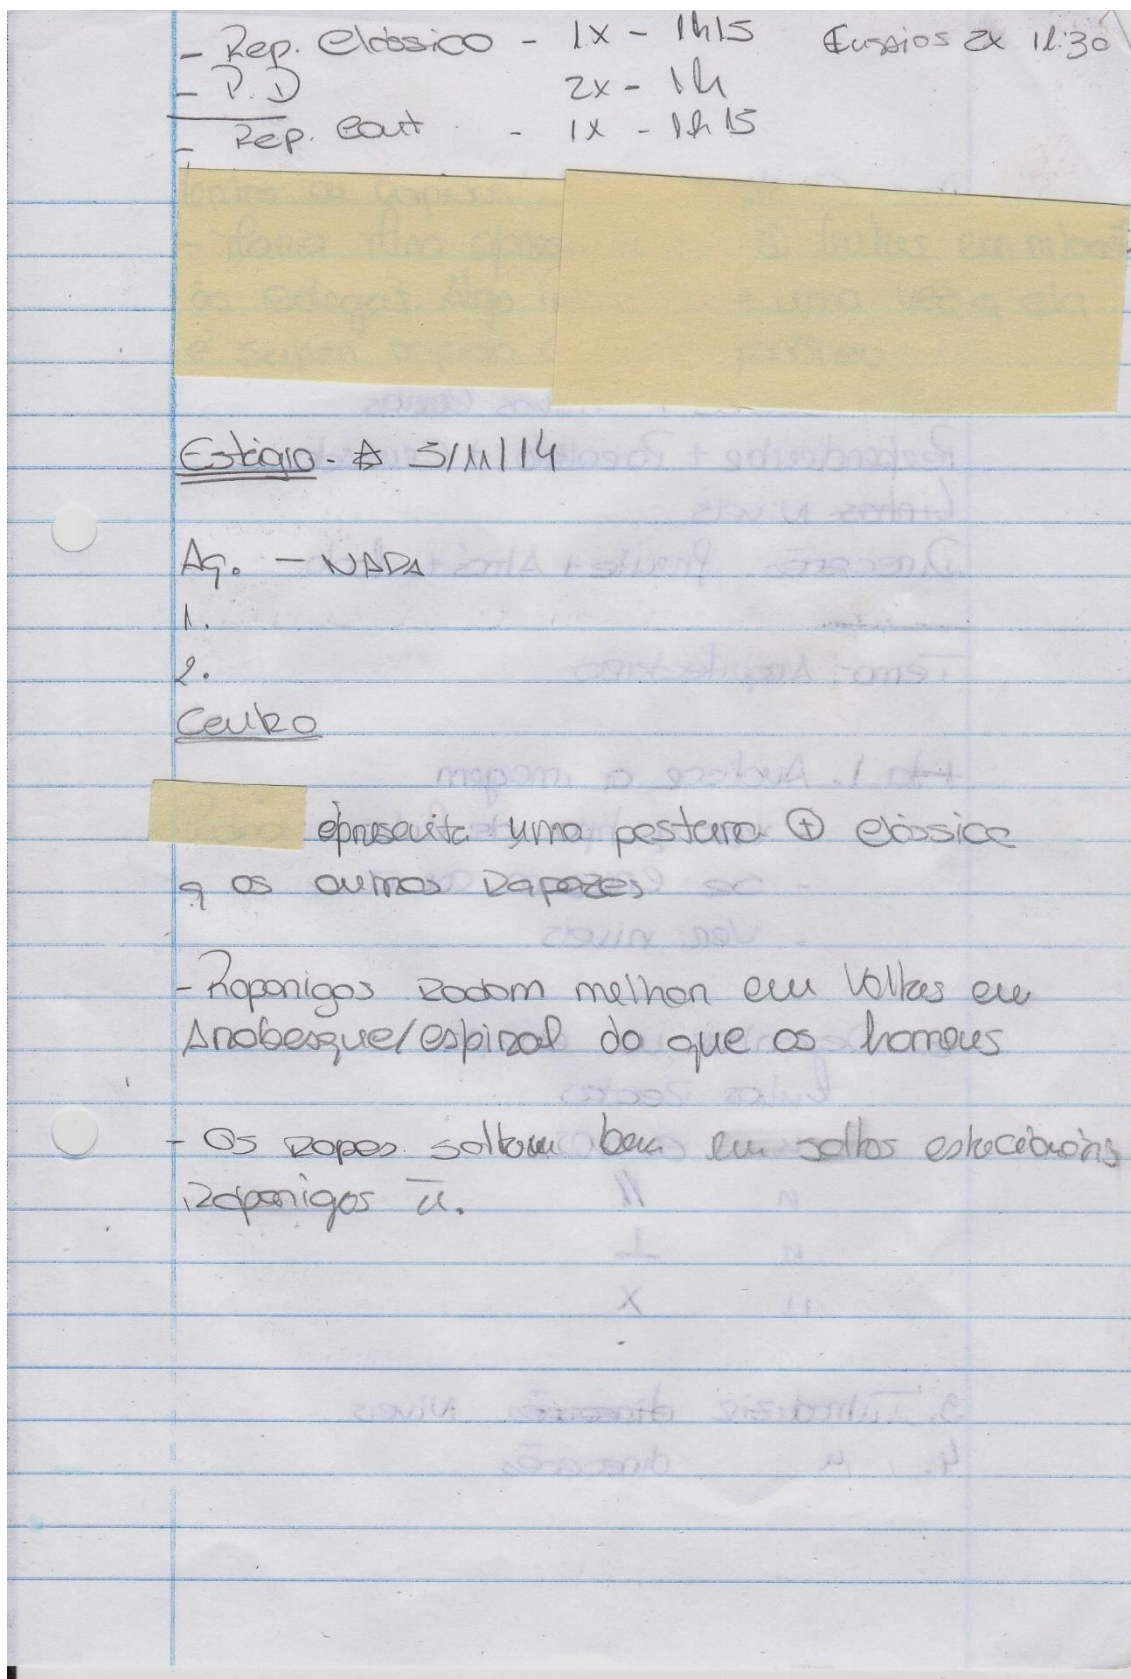 - Rep. Clássico - 1x - 1h15 Ensaios 2x 1h:30
- P.D 2x - 1h
- Rep. Cont - 1x - 1h15
Estágio - 5/11/14
Aq. - NADA
1.
2.
Centro
apresenta uma postura + clássica
q os outros rapazes
- Raparigas rodam melhor em voltas em
Arabesque/espiral do que os homens
- Os rapazes saltam bem em saltos estacionários
raparigas ñ.